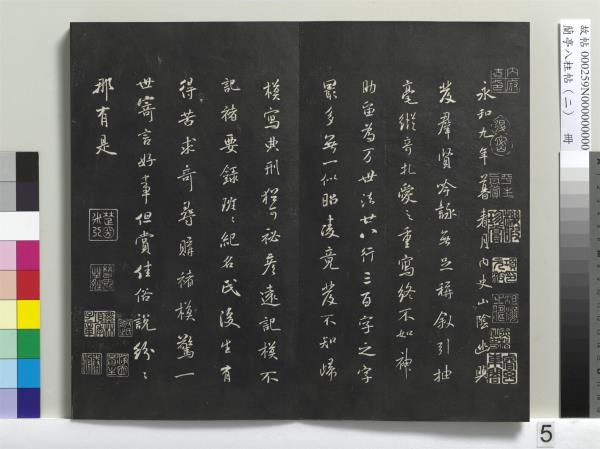 永和九年暮春月內史山陰幽興
發群賢吟詠無足稱敘引抽
毫縱奇札愛之重寫終不如神
助留為萬世法廿八行三百字之字
最多無一似昭陵竟發不知歸
模寫典刑猶可秘彥遠記模不
記褚要錄班班紀名氏後生有
得苦求奇尋購褚模驚一
世寄言好事但賞佳俗說紛紛
那有是
故帖 000259N000000000
蘭亭八柱帖（二） 冊
5